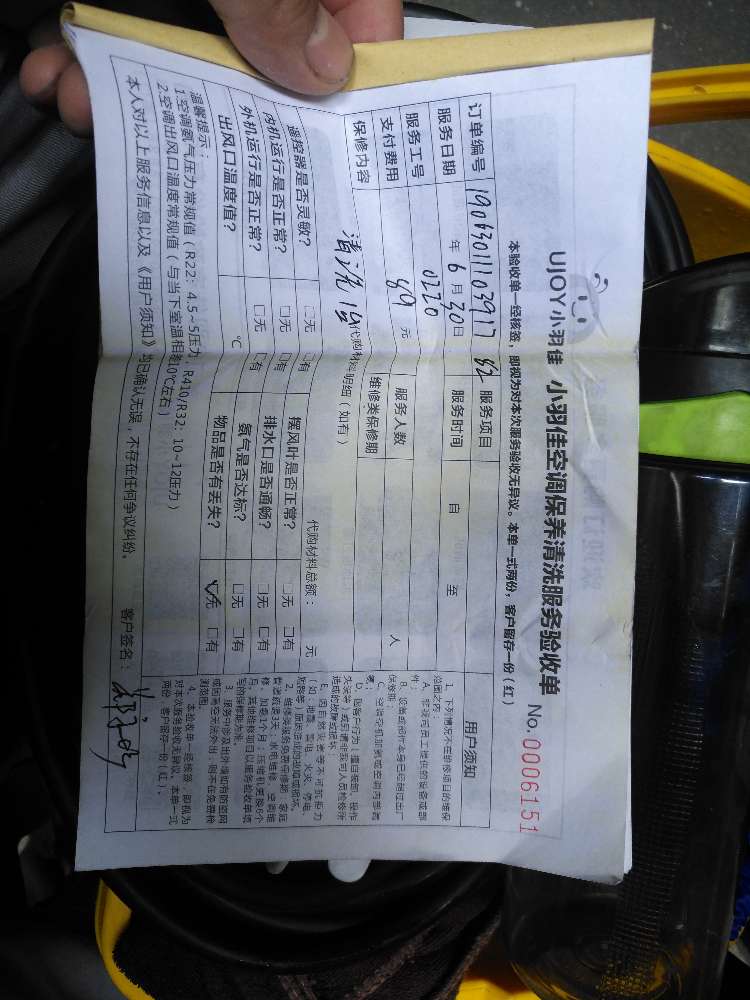 UJOY小羽佳 小羽佳空调保养清洗服务验收单
No.0006151
本验收单一经核签，即视为对本次服务验收无异议。本单一式两份，客户留存一份（红）
订单编号 19063011103917 82 服务项目
服务日期 年 6 月 30 日 服务时间 自 至
服务工号 0220 服务人数 人
支付费用 89 元 维修类保修期
保修内容 清洗1台 代购材料明细（如有）
代购材料总额： 元
遥控器是否灵敏？ □无 □有 摆风叶是否正常？ □无 □有
内机运行是否正常？ □无 □有 排水口是否通畅？ □无 □有
外机运行是否正常？ □无 □有 氨气是否达标？ □无 □有
出风口温度值？ ℃ 物品是否有丢失？ ☑无 □有
温馨提示：
1.空调氨气压力常规值（R22：4.5~5压力，R410/R32：10~12压力）
2.空调出风口温度常规值（与当下室温相差10℃左右）
本人对以上服务信息以及《用户须知》均已确认无误，不存在任何争议纠纷。 客户签名：
用户须知
1、下列情况不在维修项目的维保
范围之内：
A、非我司员工提供的设备或部
件；
B、设备或部件本身已经超过出厂
保修期；
D、因客户行为（擅自装卸、操作
失误等）或另请非我司人员检修所
造成的故障或损坏
E、因自然灾害等不可抗拒力
（如：地震、雷电、火灾、停电、
4、本验收单一经核签，即视为
对本次服务验收无异议。本单一式
两份，客户留存一份（红）。